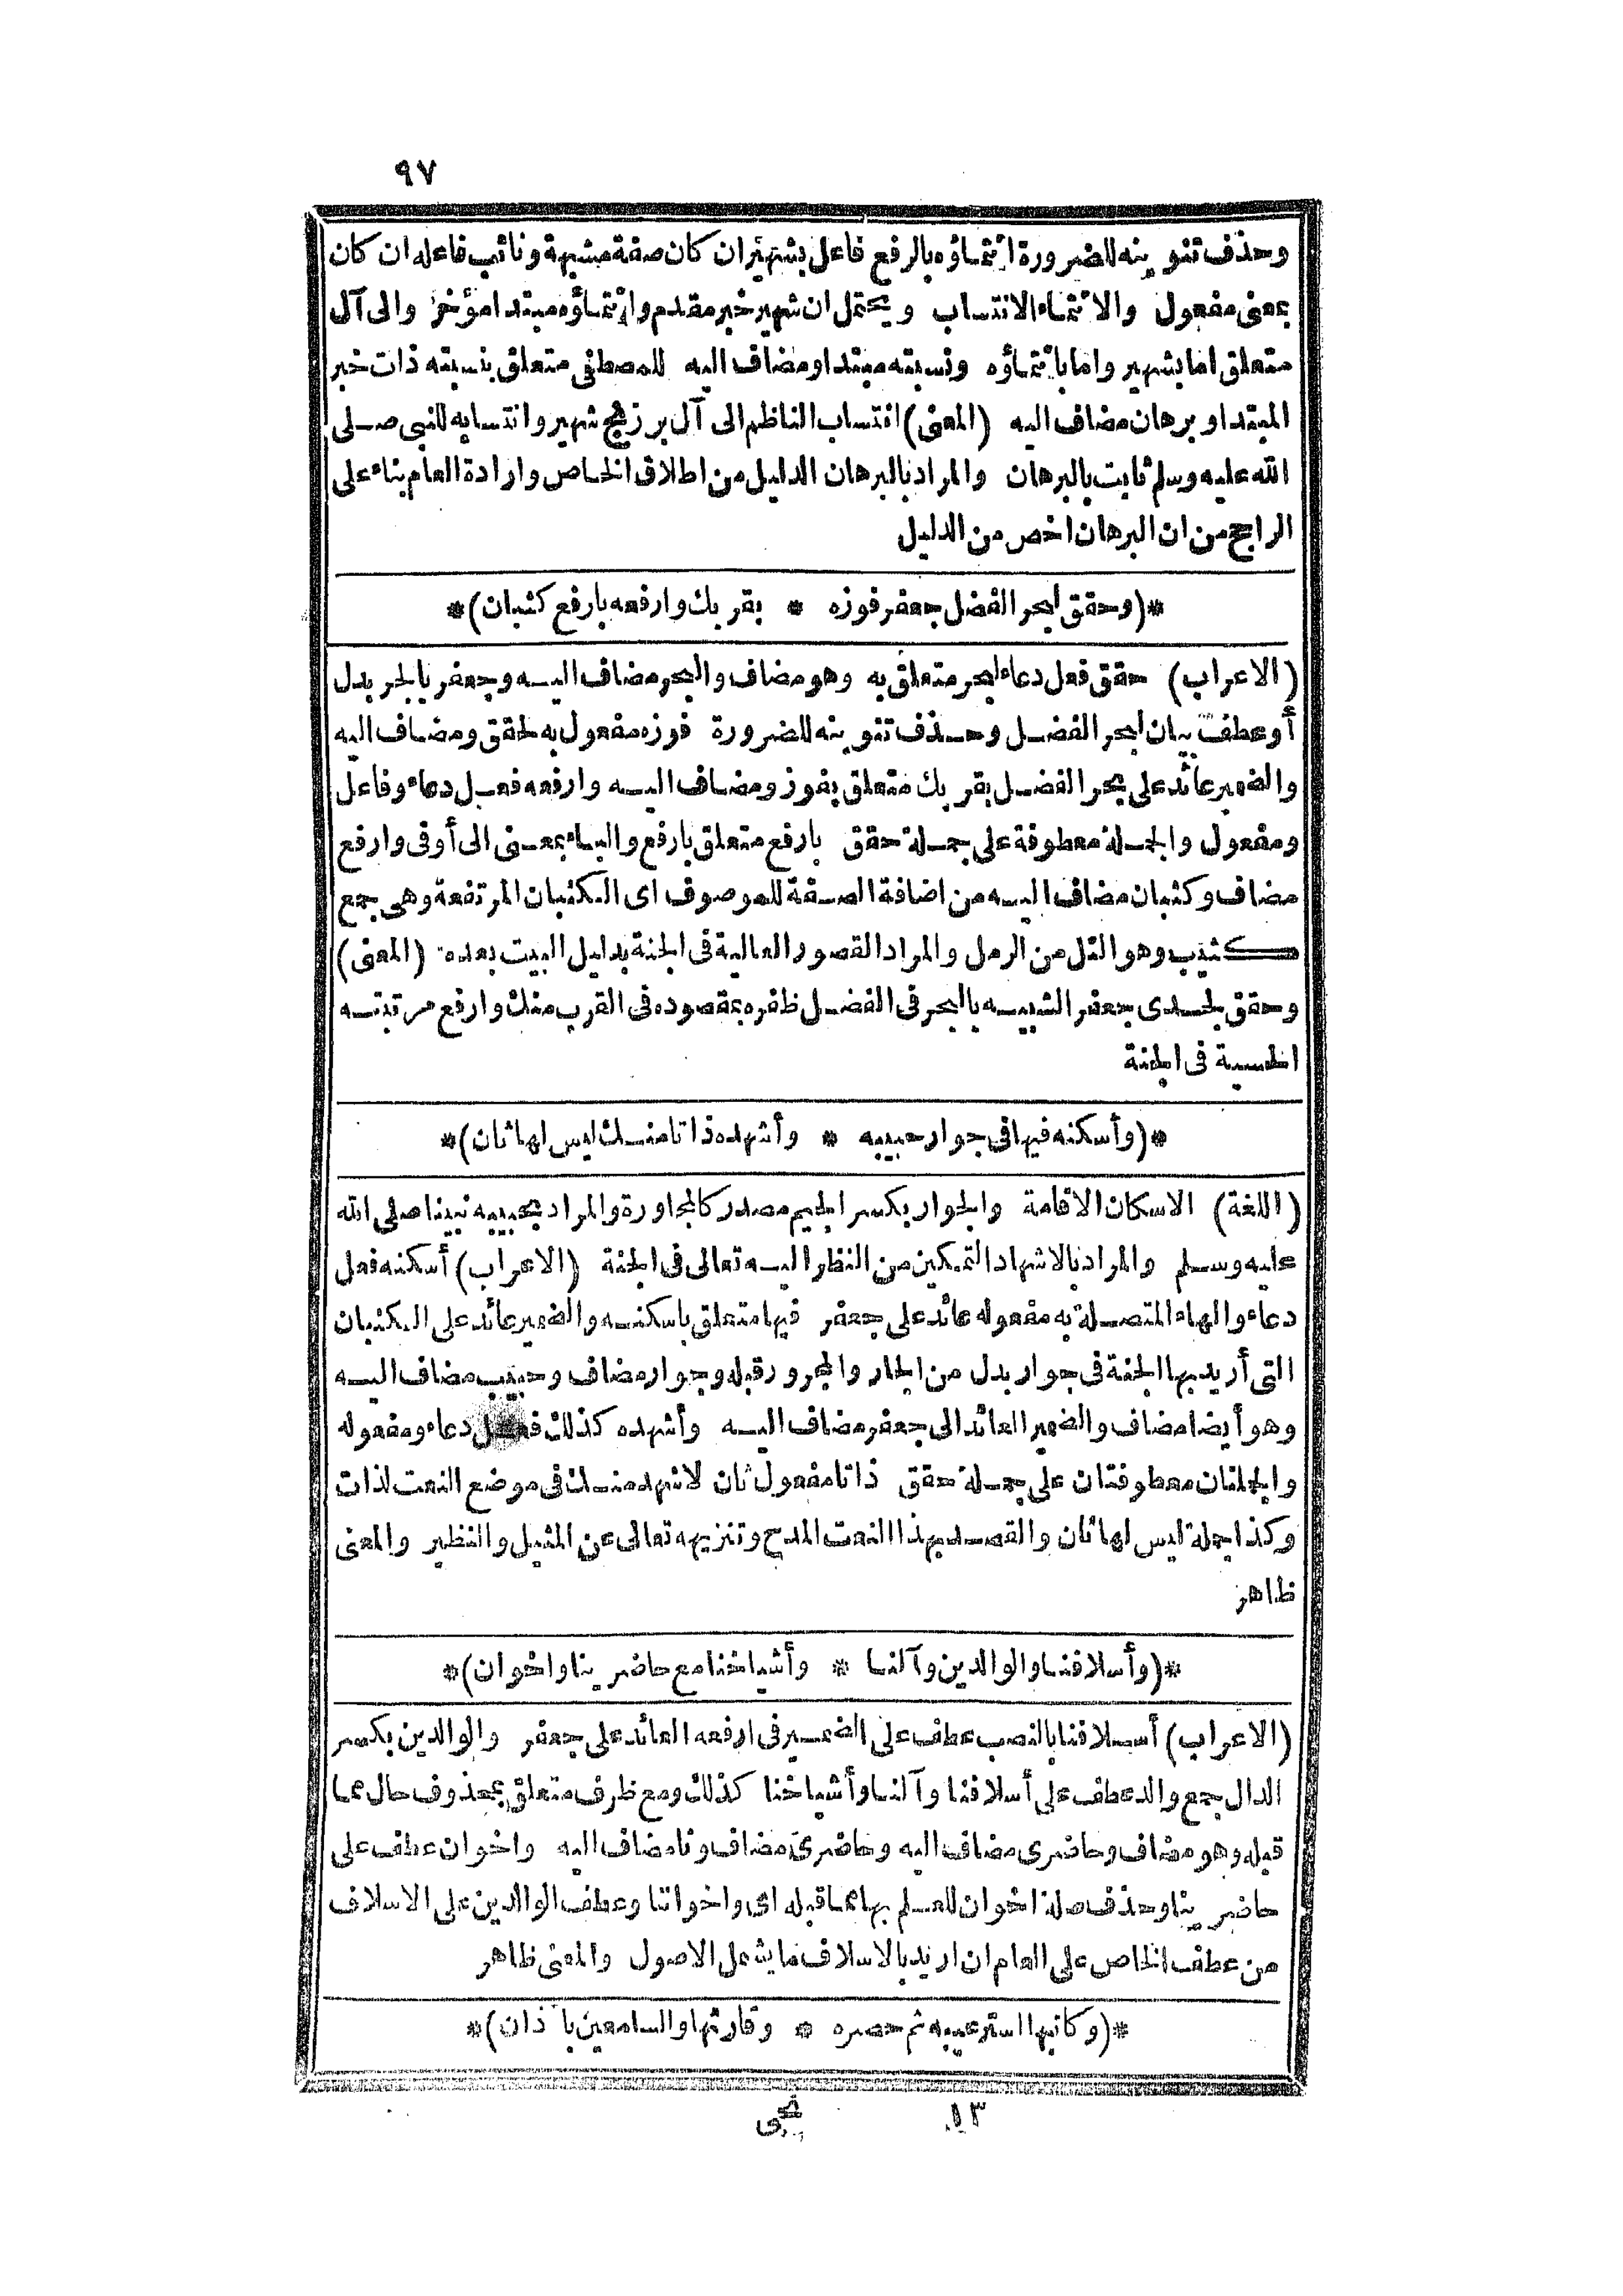 ٩٧
وحذف تنوينه للضرورة انتماؤه بالرفع فاعل بشهير ان كان صفة مشبهة ونائب فاعله ان كان
بمعنى مفعول والانتماء الانتساب ويحتمل ان شهير خبر مقدم وانتماؤه مبتدا مؤخر والى آل
متعلق اما بشهير واما بانتماؤه ونسبته مبتدا ومضاف اليه للمصطفى متعلق بنسبته ذات خبر
المبتدا وبرهان مضاف اليه (المعنى) انتساب الناظم الى آل برزنج شهير وانتسابه للنبى صلى
الله عليه وسلم ثابت بالبرهان والمراد بالبرهان الدليل من اطلاق الخاص وارادة العام بناء على
الراجح من ان البرهان اخص من الدليل
*(وحقق لبحر الفضل جعفر فوزه * بقربك وارفعه بارفع كثبان)*
(الاعراب) حقق فعل دعاء لبحر متعلق به وهو مضاف والبحر مضاف اليه وجعفر بالجر بدل
أو عطف بيان لبحر الفضل وحذف تنوينه للضرورة فوزه مفعول به لحقق ومضاف اليه
والضمير عائد على بحر الفضل بقربك متعلق بفوز ومضاف اليه وارفعه فعل دعاء وفاعل
ومفعول والجملة معطوفة على جملة حقق بارفع متعلق بارفع والباء بمعنى الى أو فى وارفع
مضاف وكثبان مضاف اليه من اضافة الصفة للموصوف اى الكثبان المرتفعة وهى جمع
كثيب وهو التل من الرمل والمراد القصور العالية فى الجنة بدليل البيت بعده (المعنى)
وحقق لجدى جعفر الشبيه بالبحر فى الفضل ظفره بمقصوده فى القرب منك وارفع مرتبته
الحسية فى الجنة
*(وأسكنه فيها فى جوار حبيبه * وأشهده ذاتا منك ليس لها ثان)*
(اللغة) الاسكان الاقامة والجوار بكسر الجيم مصدر كالمجاورة والمراد بحبيبه نبينا صلى الله
عليه وسلم والمراد بالاشهاد التمكين من النظر اليه تعالى فى الجنة (الاعراب) أسكنه فعل
دعاء والهاء المتصلة به مفعوله عائد على جعفر فيها متعلق باسكنه والضمير عائد على الكثبان
التى أريد بها الجنة فى جوار بدل من الجار والمجرور قبله وجوار مضاف وحبيب مضاف اليه
وهو أيضا مضاف والضمير العائد الى جعفر مضاف اليه وأشهده كذلك فعل دعاء ومفعوله
والجملتان معطوفتان على جملة حقق ذاتا مفعول ثان لاشهد منك فى موضع النعت لذات
وكذا جملة ليس لها ثان والقصد بهذا النعت المدح وتنزيهه تعالى عن المثيل والنظير والمعنى
ظاهر
*(وأسلافنا والوالدين وآلنا * وأشياخنا مع حاضرينا واخوان)*
(الاعراب) أسلافنا بالنصب عطف على الضمير فى ارفعه العائد على جعفر والوالدين بكسر
الدال جمع والد عطف على أسلافنا وآلنا وأشياخنا كذلك ومع ظرف متعلق بمحذوف حال مما
قبله وهو مضاف وحاضرى مضاف اليه وحاضرى مضاف ونا مضاف اليه واخوان عطف على
حاضرينا وحذف صلة اخوان للعلم بها مما قبله اى واخواننا وعطف الوالدين على الاسلاف
من عطف الخاص على العام ان اريد بالاسلاف ما يشمل الاصول والمعنى ظاهر
*(وكاتبها استر عيبه ثم حصره * وقارئها والسامعين باذان)*
١٣ نجى